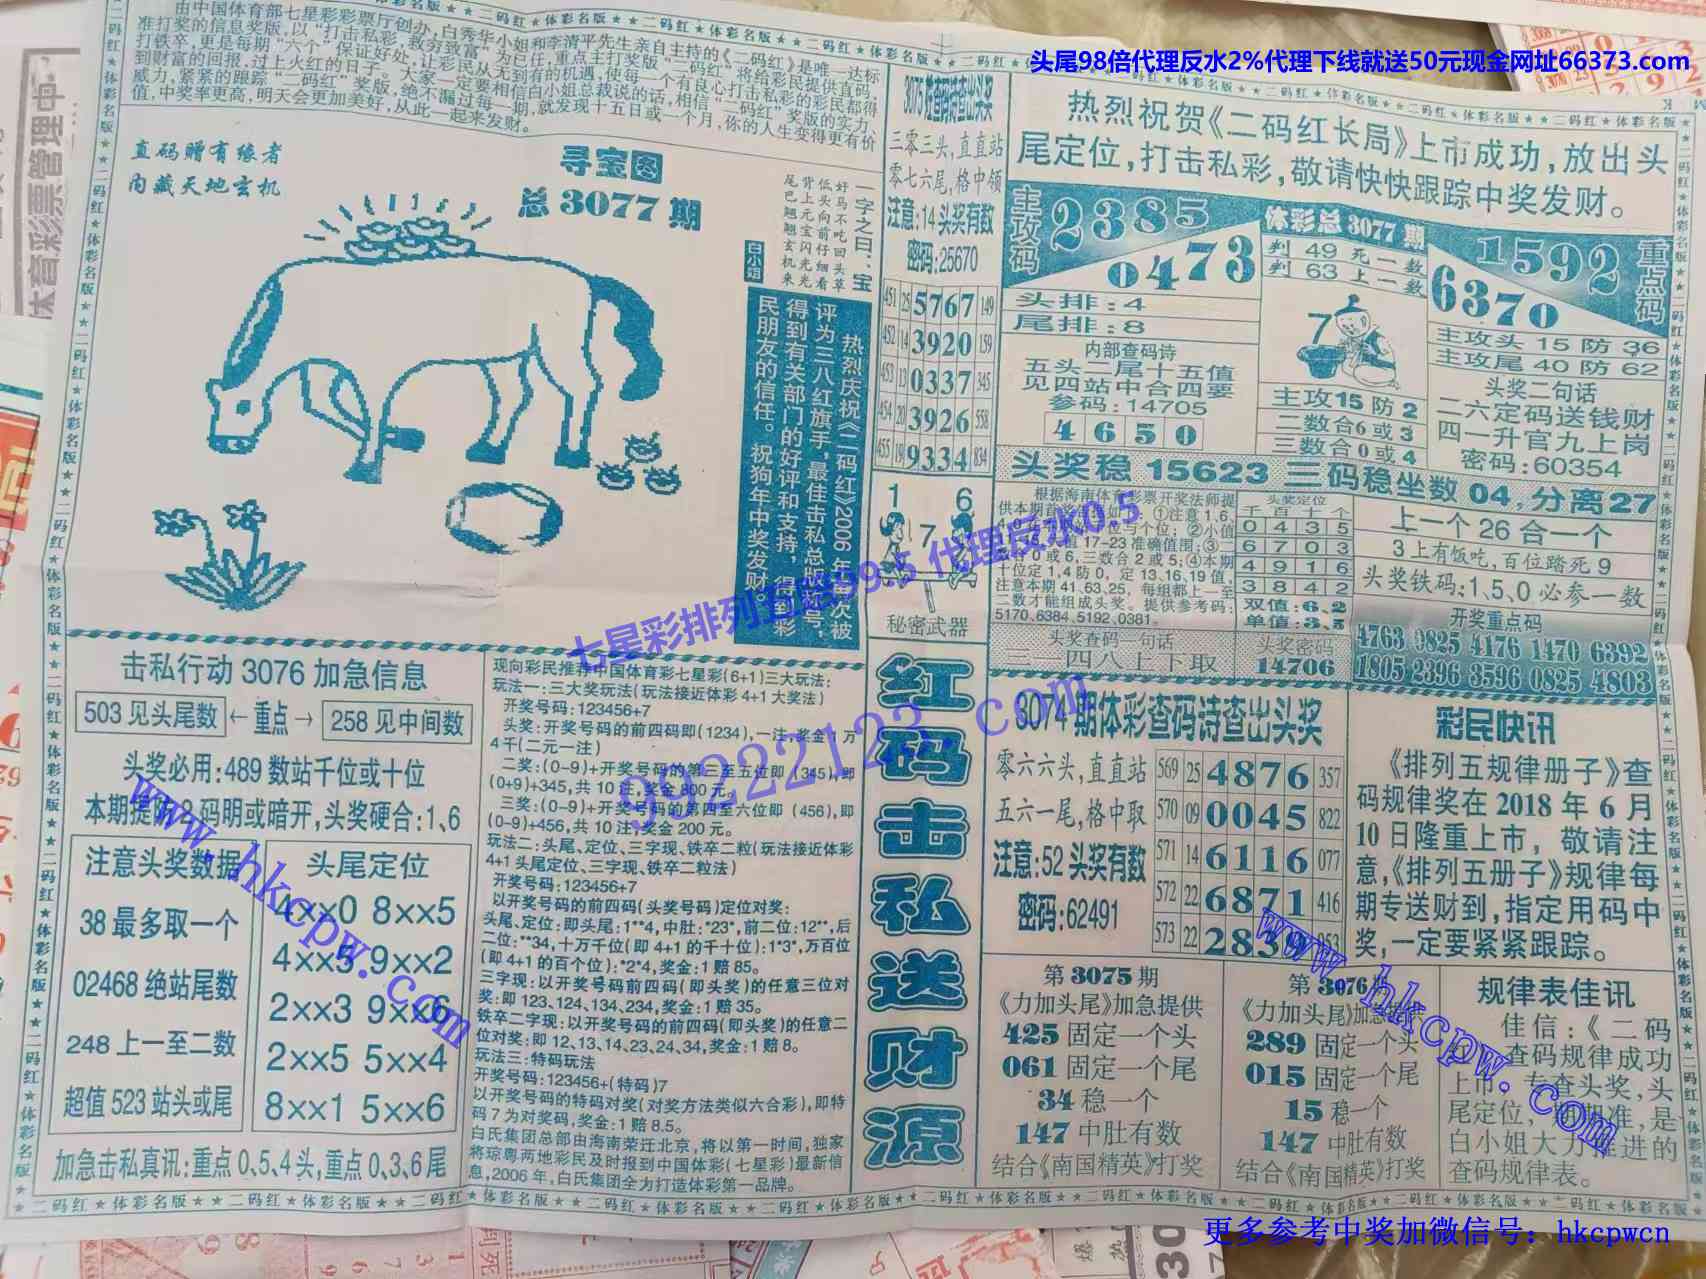 头尾98倍代理反水2%代理下线就送50元现金网址66373.com
由中国体育部七星彩彩票厅创办,白秀华小姐和李清平先生亲自主持的《二码红》是唯一达标
准打奖的信息奖版,以“打击私彩,救穷致富”为己任,重点主打奖版“二码红”将给彩民提供直码,
打铁卒,更是每期“六个”保证好处,让彩民从无到有的机遇,使每一个有良心打击私彩的彩民都得
到财富的回报,过上火红的日子。大家一定要相信白小姐总裁说的话,相信“二码红”奖版的实力,
威力,紧紧的跟踪“二码红”奖版,绝不漏过每一期,就发现十五日或一个月,你的人生变得更有价
值,中奖率更高,明天会更加美好,从此一起来发财。
直码赠有缘者
内藏天地玄机
寻宝图
总3077期
一字之曰:宝
好马不吃回头草
低头向前仔细看
背上元宝闪光光
尾巴翘翘玄机来
白小姐
热烈庆祝《二码红》2006年再次被
评为三八红旗手,最佳击私总版称号,
得到有关部门的好评和支持,得到彩
民朋友的信任。祝狗年中奖发财。
3075期查码诗查出头奖
三零三头,直直站
零七六尾,格中领
注意:14头奖有数
密码:25670
451 25 5767 149
452 14 3920 159
453 13 0337 345
454 20 3926 558
455 19 9334 834
1 6
7
秘密武器
热烈祝贺《二码红长局》上市成功,放出头
尾定位,打击私彩,敬请快快跟踪中奖发财。
主攻码
2385
0473
体彩总3077期
判49死一数
判63上一数
1592
6370
重点码
头排:4
尾排:8
内部查码诗
五头二尾十五值
见四站中合四要
参码:14705
4650
7
主攻15防2
二数合6或3
三数合0或4
主攻头15防36
主攻尾40防62
头奖二句话
二六定码送钱财
四一升官九上岗
密码:60354
头奖稳15623三码稳坐数04,分离27
根据海南体育彩票开奖法师提
注意本期41.63.25,每组都上一至
二数才能组成头奖。提供参考码:
5170.6384.5192.0381。
头奖定位
千百十个
0435
6703
4916
3842
双值:6、2
单值:3、5
上一个26合一个
3上有饭吃,百位踏死9
头奖铁码:1、5、0必参一数
头奖查码一句话
四八上下取
头奖密码
14706
开奖重点码
4763 0825 4176 1470 6392
1805 2396 3596 0825 4803
七星彩排列五送99.5 代理反水0.5
击私行动3076加急信息
503见头尾数 ←重点→ 258见中间数
头奖必用:489数站千位或十位
本期提防2码明或暗开,头奖硬合:1、6
注意头奖数据
38最多取一个
02468绝站尾数
248上一至二数
超值523站头或尾
头尾定位
4××0 8××5
4××5 9××2
2××3 9××6
2××5 5××4
8××1 5××6
加急击私真讯:重点0、5、4头,重点0、3、6尾
现向彩民推荐中国体育彩七星彩(6+1)三大玩法:
玩法一:三大奖玩法(玩法接近体彩4+1大奖法)
开奖号码:123456+7
头奖:开奖号码的前四码即(1234),一注,奖金1万
4千(二元一注)
二奖:(0-9)+开奖号码的第三至五位即(345),即
(0+9)+345,共10注,奖金800元。
三奖:(0-9)+开奖号码的第四至六位即(456),即
(0-9)+456,共10注,奖金200元。
玩法二:头尾、定位、三字现、铁卒二粒(玩法接近体彩
4+1头尾定位、三字现、铁卒二粒法)
开奖号码:123456+7
以开奖号码的前四码(头奖号码)定位对奖:
头尾、定位:即头尾:1**4,中肚:*23*,前二位:12**,后
二位:**34,十万千位(即4+1的千十位):1*3*,万百位
(即4+1的百个位):*2*4,奖金:1赔85。
三字现:以开奖号码前四码(即头奖)的任意三位对
奖:即123、124、134、234,奖金:1赔35。
铁卒二字现:以开奖号码的前四码(即头奖)的任意二
位对奖:即12、13、14、23、24、34,奖金:1赔8。
玩法三:特码玩法
开奖号码:123456+(特码)7
以开奖号码的特码对奖(对奖方法类似六合彩),即特
码7为对奖码,奖金:1赔8.5。
白氏集团总部由海南荣迁北京,将以第一时间,独家
将琼粤两地彩民及时报到中国体彩(七星彩)最新信
息,2006年,白氏集团全力打造体彩第一品牌。
红码击私送财源
3074期体彩查码诗查出头奖
零六六头,直直站
五六一尾,格中取
注意:52头奖有数
密码:62491
569 25 4876 357
570 09 0045 822
571 14 6116 077
572 22 6871 416
573 22 2839 953
彩民快讯
《排列五规律册子》查
码规律奖在2018年6月
10日隆重上市,敬请注
意,《排列五册子》规律每
期专送财到,指定用码中
奖,一定要紧紧跟踪。
第3075期
《力加头尾》加急提供
425固定一个头
061固定一个尾
34稳一个
147中肚有数
结合《南国精英》打奖
第3076期
《力加头尾》加急提供
289固定一个头
015固定一个尾
15稳一个
147中肚有数
结合《南国精英》打奖
规律表佳讯
佳信:《二码
查码规律成功
上市,专查头奖,头
尾定位,期期准,是
白小姐大力推进的
查码规律表。
www.hkcpw.com
90222123.com
www.hkcpw.com
更多参考中奖加微信号:hkcpwcn